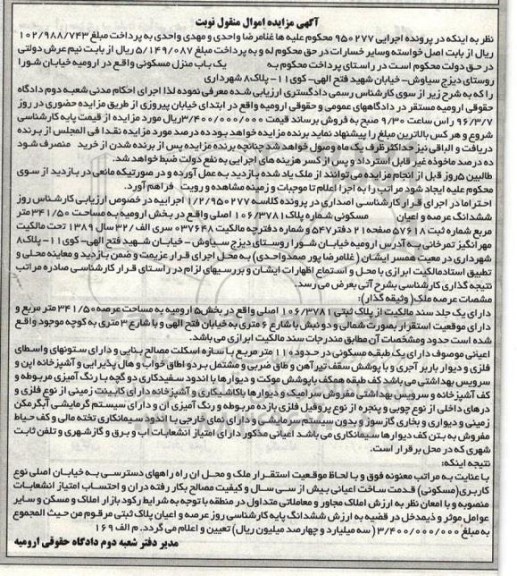 آگهی مزایده اموال منقول نوبت
نظر به اینکه در پرونده اجرایی 950277 محکوم علیه ها غلامرضا واحدی و مهدی واحدی به پرداخت مبلغ 102/988/743
ریال از بابت اصل خواسته وسایر خسارات در حق محکوم له و به پرداخت مبلغ 5/149/087 ریال از بابت نیم عرش دولتی
در حق دولت محکوم است در راستای پرداخت محکوم به یک باب منزل مسکونی واقع در ارومیه خیابان شورا
روستای دیزج سیاوش- خیابان شهید فتح الهی- کوی 11- پلاک 8 شهرداری
را که به شرح زیر از سوی کارشناس رسمی دادگستری ارزیابی شده معرفی نموده لذا اجرای احکام مدنی شعبه دوم دادگاه
حقوقی ارومیه مستقر در دادگاههای عمومی و حقوقی ارومیه واقع در ابتدای خیابان پیروزی از طریق مزایده حضوری در روز
96/3/7 راس ساعت 9/30 صبح به فروش برساند قیمت 3/400/000/000 ریال مورد مزایده از قیمت پایه کارشناسی
شروع و هر کس بالاترین مبلغ را پیشنهاد نماید برنده مزایده خواهد بود ده درصد مورد مزایده نقدا فی المجلس از برنده
دریافت و الباقی نیز حداکثر ظرف یک ماه وصول خواهد شد چنانچه برنده مزایده پس از برنده شدن از خرید منصرف شود
ده درصد ماخوذه غیر قابل استرداد و پس از کسر هزینه های اجرایی به نفع دولت ضبط خواهد شد.
طالبین 5 روز قبل از انجام مزایده می توانند از ملک یاد شده بازدید به عمل آورده و در صورتیکه مانعی در بازدید از سوی
محکوم علیه ایجاد شود مراتب را به اجرا اعلام تا موجبات و زمینه مشاهده و رویت فراهم آورد.
احتراما در اجرای قرار کارشناسی اصداری در پرونده کلاسه 1/2/950277 اجراییه در خصوص ارزیابی کارشناس روز
ششدانگ عرصه و اعیان مسکونی شماره پلاک 106/3781 اصلی واقع در بخش ارومیه به مساحت 341/50 متر
مربع شماره ثبت 57618 صفحه 21 دفتر 547 و شماره دفترچه مالکیت 037648 سری الف/32 سال 1389 تحت مالکیت
مهرانگیز تمرخانی به آدرس ارومیه خیابان شورا روستای دیزج سیاوش - خیابان شهید فتح الهی- کوی 11- پلاک 8
شهرداری در معیت همسر ایشان (غلامرضا پور صمد واحدی) به محل اجرای قرار عزیمت و ضمن بازدید و معاینه محلی و
تطبیق اسناد مالکیت ابرازی با محل و استماع اظهارات ایشان و بررسیهای لازم در راستای قرار کارشناسی صادره مراتب
نتیجه گذاری کارشناسی بشرح آتی بعرض می رسد.
مشخصات عرصه ملک( وثیقه گذار):
دارای یک جلد سند مالکیت از پلاک ثبتی 106/3781 اصلی واقع در بخش 5 ارومیه به مساحت عرصه 341/50 متر مربع و
دارای موقعیت استقرار بصورت شمالی و دو نبش با شارع 6 متری به خیابان فتح الهی و با شارع 3 متری به کوچه موجود واقع
شده است حدود و مشخصات آن مطابق مندرجات سند مالکیت ابرازی می باشد.
اعیانی موصوف دارای یک طبقه مسکونی در حدود 110 متر مربع با سازه اسکلت مصالح بنایی و دارای ستونهای واسطه ای
فلزی و دیوار باربر آجری و با پوشش سقف تیرآهن و طاق ضربی و مشتمل بر دو اطاق خواب و هال پذیرایی و آشپزخانه اپن و
سرویس بهداشتی می باشد کف طبقه همکف باپوشش موکت و دیوارها با اندود سفیدکاری دوگچه با رنگ آمیزی مربوطه و
کف آشپزخانه و سرویس بهداشتی مفروش سرامیک و دیوارها باکاشیکاری و آشپزخانه دارای کابینت زمینی از نوع فلزی و
درهای داخلی از نوع چوبی و پنجره از نوع پروفیل فلزی بازده مربوطه و رنگ آمیزی آن و دارای سیستم گرمایشی آبگرمکن
زمینی و دیواری و بخاری گازسوز و بدون سیستم سرمایشی و دارای نمای خارجی با اندود سیمانکاری تخته مالی و کف حیاط
مفروش به بتن کف دیوارها سیمانکاری می باشد اعیانی مذکور دارای امتیاز انشعابات آب و برق و گازشهری و تلفن ثابت
شهری که در محل برقرار است.
نتیجه اینکه:
با عنایت به مراتب معنونه فوق و با لحاظ موقعیت استقرار ملک و محل آن راه راههای دسترسی به خیابان اصلی نوع
کاربری(مسکونی) قدمت ساخت اعیانی بیش از سی سال و کیفیت مصالح بکار رفته در آن و احتساب امتیاز انشعابات
منصوبه و با امعان نظر به ارزش املاک مجاور و معاملاتی متداول در منطقه با توجه به شرایط رکود بازار املاک و مسکن و سایر
عوامل موثر و ذیمدخل در قضیه به ارزش ششدانگ پایه کارشناسی روز عرصه و اعیان پلاک ثبتی مرقوم من حیث المجموع
به مبلغ 3/400/000/000 (سه میلیارد و چهارصد میلیون ریال) تعیین و اعلام می گردد. م الف 169
مدیر دفتر شعبه دوم دادگاه حقوقی ارومیه